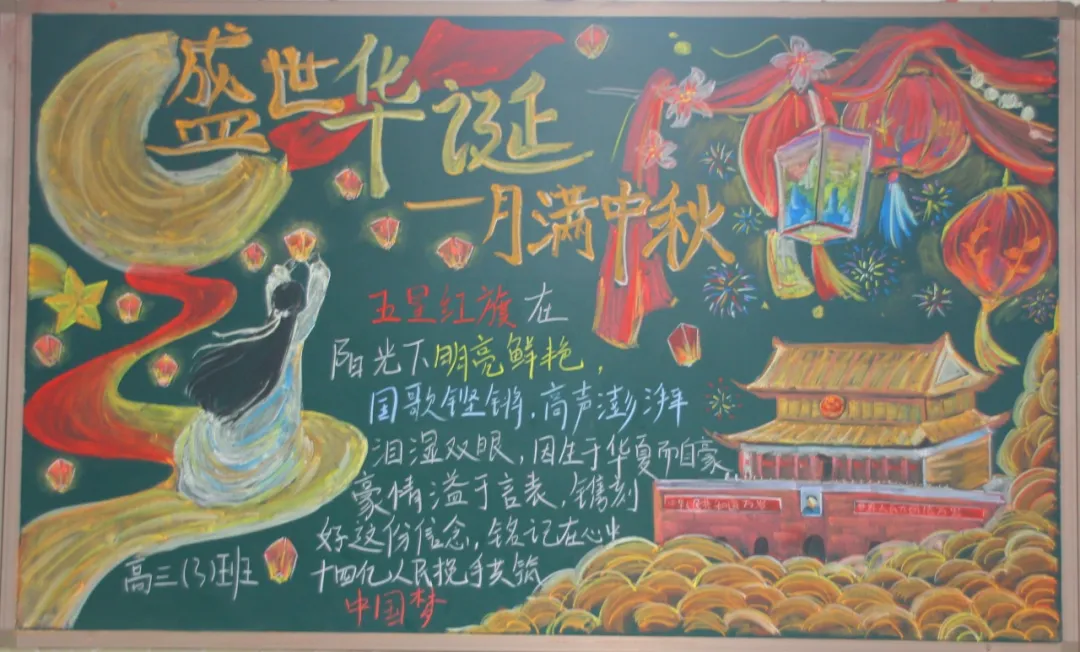 盛世华诞
一月满中秋
五星红旗在
阳光下明亮鲜艳，
国歌铿锵，高声澎湃
泪湿双眼，因生于华夏而自豪，
豪情溢于言表，镌刻
好这份信念，铭记在心中
十四亿人民携手共筑
中国梦
高三（3）班